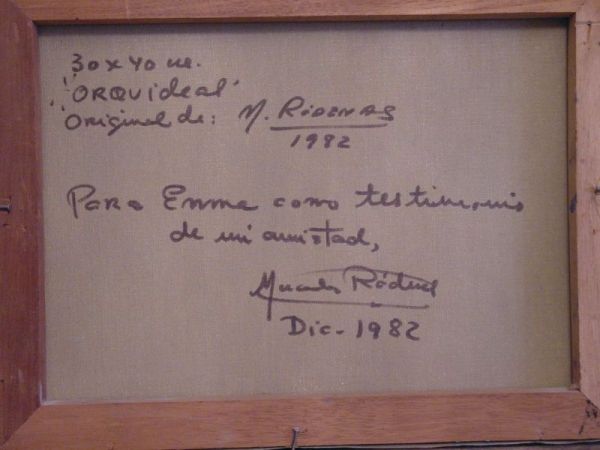 30 x 40 cm.
"ORQUideal"
Original de: M. RÓDENAS
1982
Para Emma como testimonio
de mi amistad,
Mercedes Ródenas
Dic. 1982